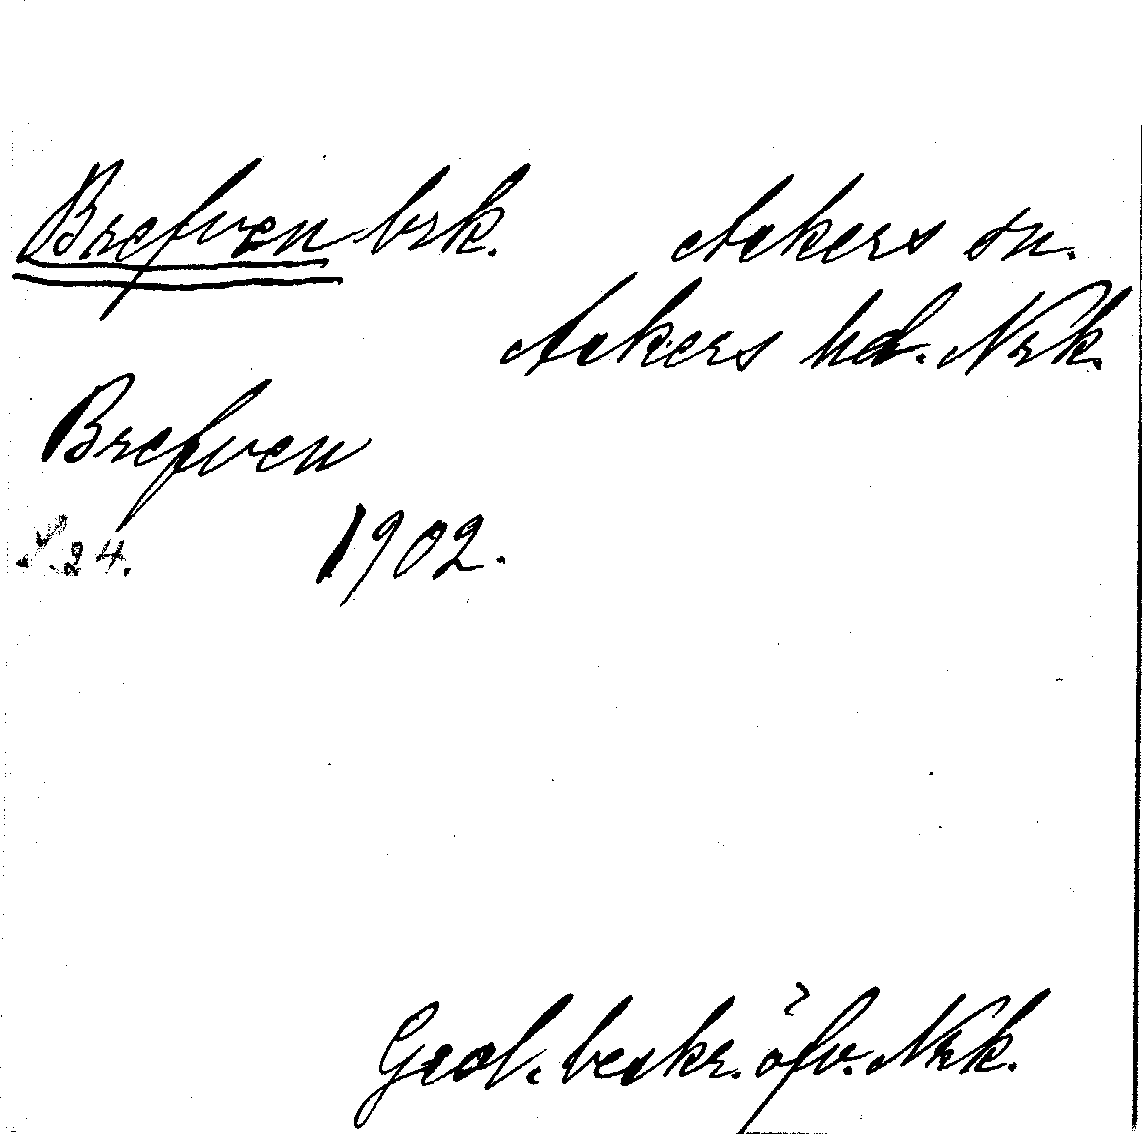 Brefven brk. Askers sn.
Askers hd. Nrk.
Brefven
S. 24. 1902.
Geol. beskr. öfv. Nrk.